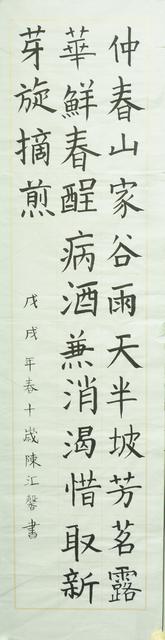 仲春山家谷雨天半坡芳茗露
華鮮春酲病酒兼消渴惜取新
芽旋摘煎
戊戌年春十歲陳汇馨書